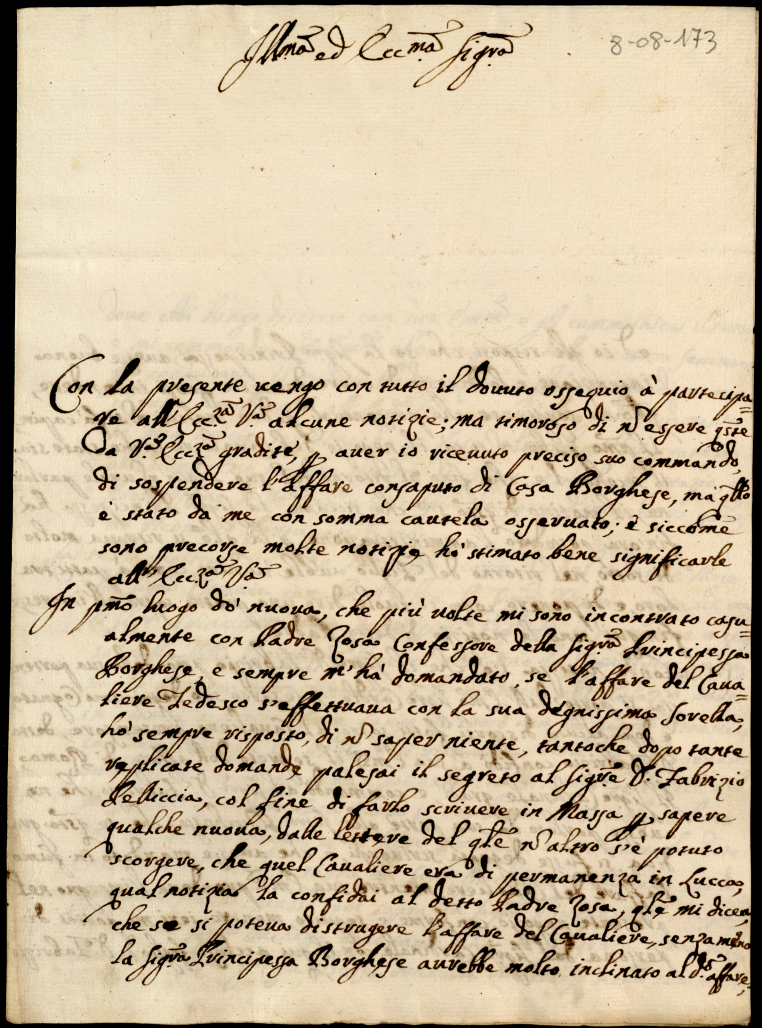 Ill.ma ed Ecc.ma Sig.ra
8-08-173
Con la presente uengo con tutto il douuto ossequio à partecipa=
re all'Ecc.za V.a alcune notizie; ma timoroso di nō essere q.ste
a V.a Ecc.za gradite, p auer io riceuuto preciso suo commando,
di sospendere l'affare consaputo di Casa Borghese, ma q.sto
è stato da me con somma cautela osseruato; è siccome
sono precorse molte notizie hò stimato bene significarle
all'Ecc.za V.a
In p.mo luogo dò nuoua, che più uolte mi sono incontrato casu=
almente con Padre Rosa Confessore della Sig.ra Principessa
Borghese, e sempre m'hà domandato, se l'affare del Caua=
liere Tedesco s'effettuaua con la sua degnissima sorella,
hò sempre risposto, di nō saper niente, tantoche dopo tante
replicate domande palesai il segreto al Sig.re D. Fabrizio
Pelliccia, col fine di farlo scriuere in Massa p sapere
qualche nuoua, dalle lettere del q.le nō altro s'è potuto
scorgere, che quel Caualiere era di permanenza in Lucca,
qual notizia la confidai al detto Padre Rosa, q.le mi dicea,
che se si poteua distrugere l'affare del Caualiere, senza meno
la Sig.ra Principessa Borghese aurebbe molto inclinato al d.o affare,